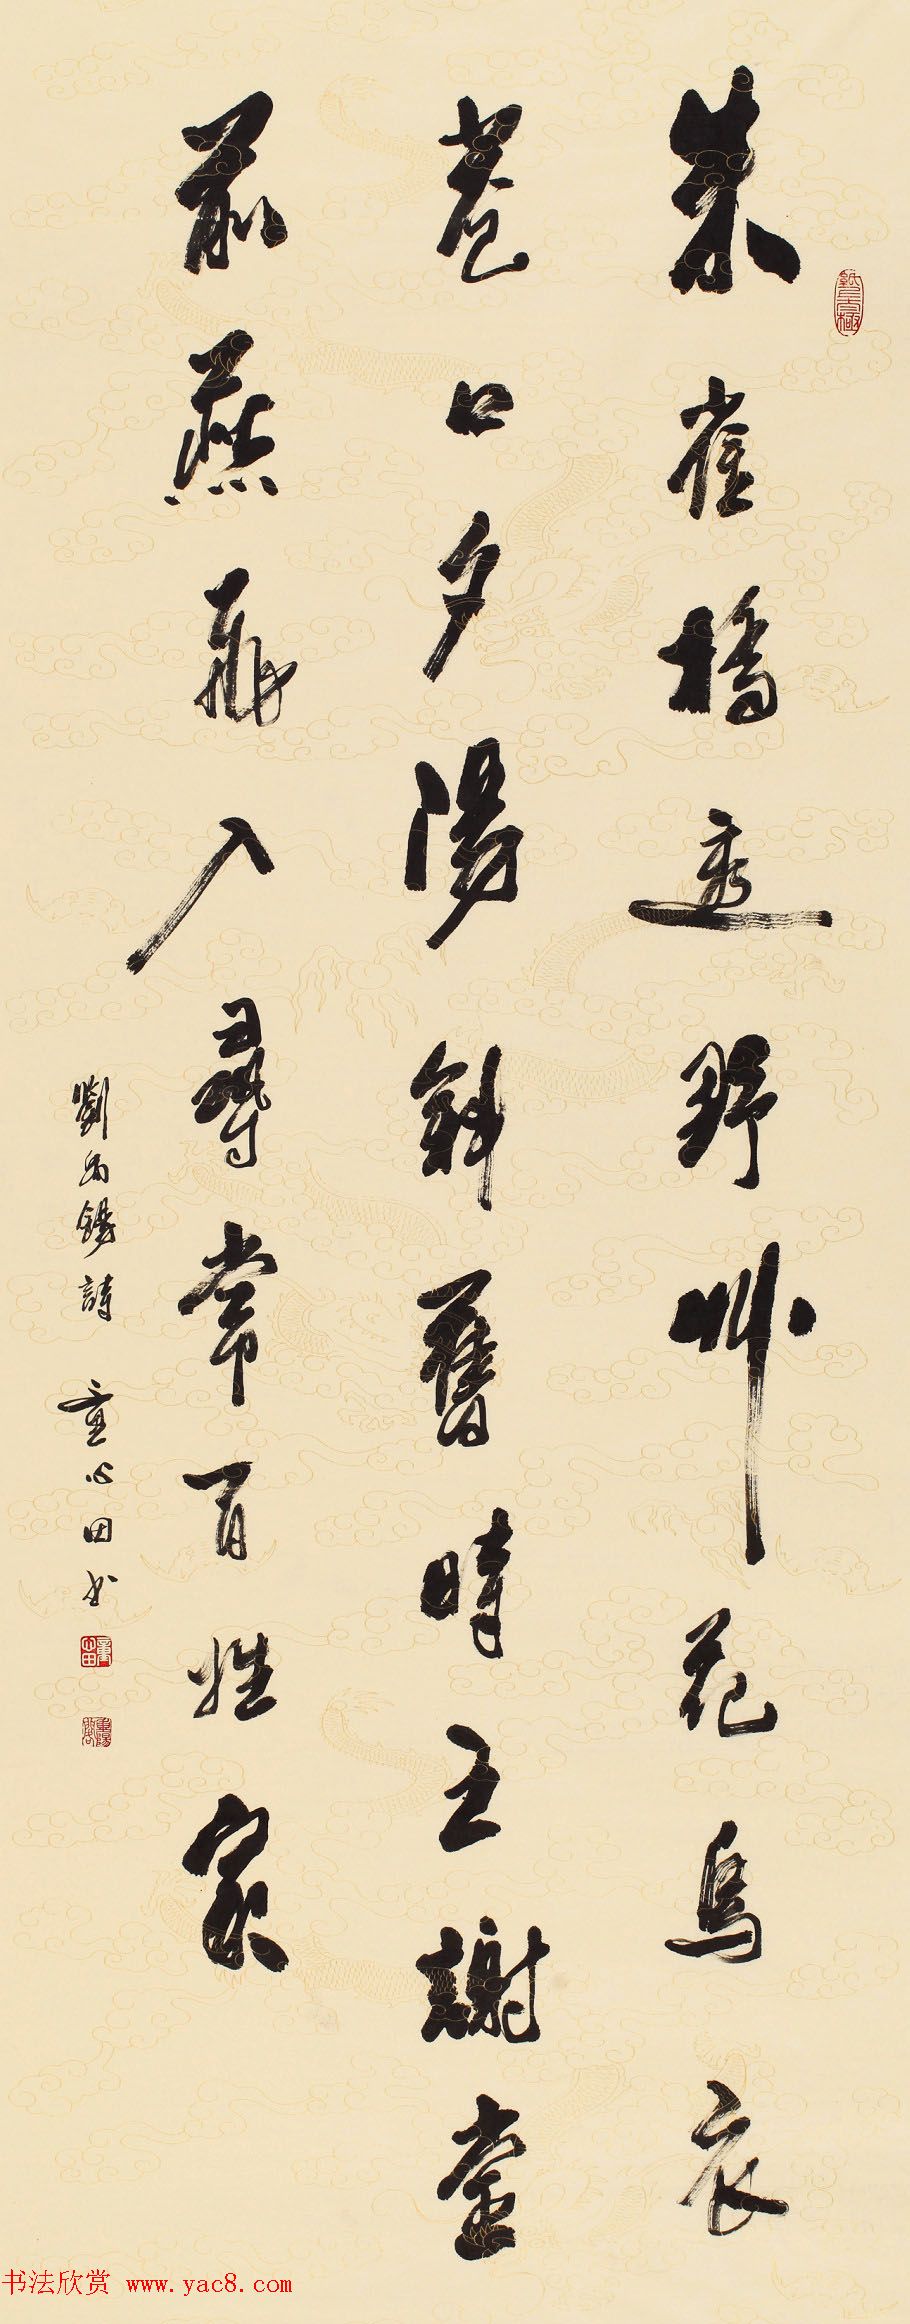 朱雀橋邊野艸花烏衣
巷口夕陽斜舊時王謝堂
前燕飛入尋常百姓家
劉禹錫詩 童心田书
书法欣赏 www.yac8.com